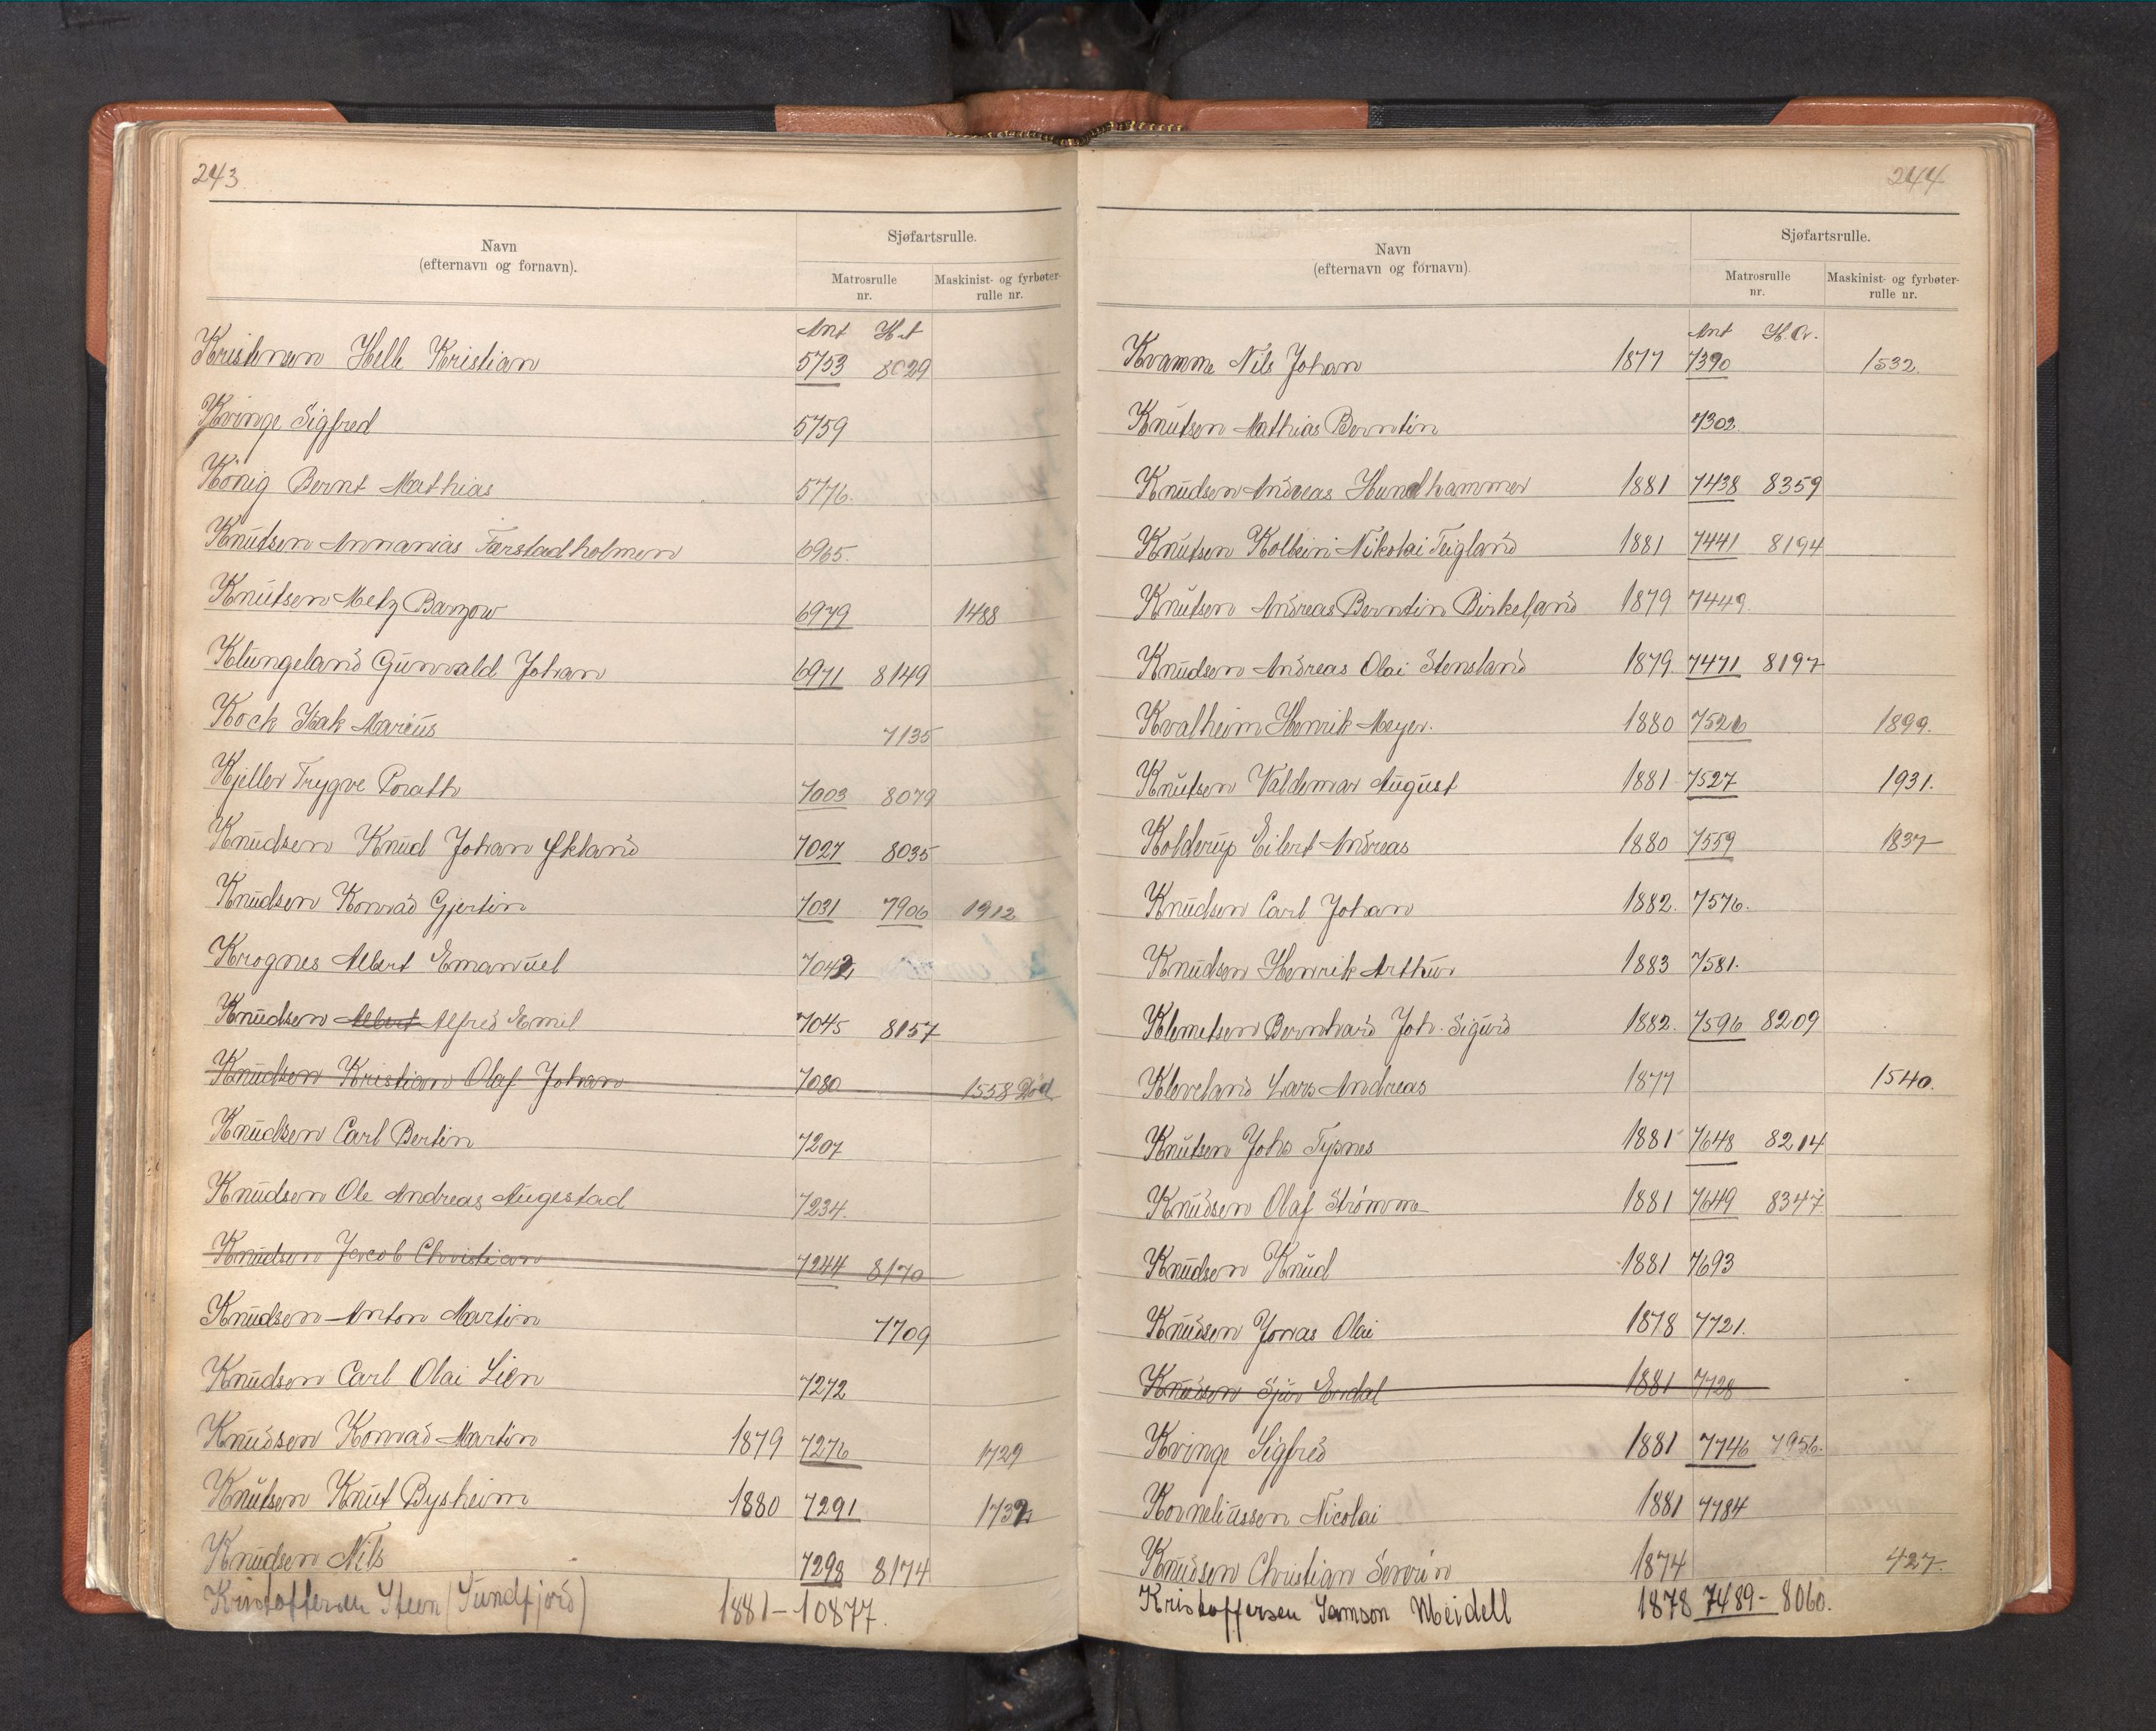 243
Navn
(efternavn og fornavn).
Sjøfartsrulle.
Matrosrulle
nr.
Maskinist- og fyrbøter-
rulle nr.
Ant H.t
Kristensen Helle Kristian 5753 8029
Kvinge Sigfred 5759
König Bernt Mathias 5776.
Knutsen Annanias Færstadholmen 6965.
Knutsen Metz Barzow 6979 1488
Klungeland Gunvald Johan 6971 8149
Kock Isak Marius 7135
Kjeller Trygve Porath 7003 8079
Knudsen Knud Johan Økland 7027 8035
Knudsen Konrad Gjertin 7031 7906 1912
Krognes Albert Emanuel 7042
Knudsen Albert Alfred Emil 7045 8157
Knudsen Kristian Olaf Johan 7080 1558 Død
Knudsen Carl Bertin 7207
Knudsen Ole Andreas Augestad 7234.
Knudsen Jacob Christian 7244 8170
Knudsen Anton Martin 7709
Knudsen Carl Olai Lien 7272
Knudsen Konrad Martin 1879 7276 1729
Knutsen Knut Bysheim 1880 7291 1732
Knudsen Nils 7298 8174
Kristoffersen Steen (Sundfjord) 1881 – 10877.
244
Navn
(efternavn og fornavn).
Sjøfartsrulle.
Matrosrulle
nr.
Maskinist- og fyrbøter-
rulle nr.
Ant H.Nr.
Kvamme Nils Johan 1877 7390 1532.
Knutsen Mathias Berntin 7302.
Knudsen Andreas Hundhammer 1881 7438 8359
Knutsen Kolbein Nikolai Teigland 1881 7441 8194
Knutsen Andreas Berntin Birkeland 1879 7449.
Knudsen Andreas Olai Stensland 1879. 7471 8197
Kvalheim Henrik Meyer. 1880 7526 1899.
Knutsen Valdemar August 1881 7527 1931.
Kolderup Eilert Andreas 1880 7559 1837
Knudsen Carl Johan 1882. 7576.
Knudsen Henrik Arthur 1883 7581.
Klemetsen Bernhard Joh. Sigurd 1882. 7596 8209
Kleveland Lars Andreas 1877 1540.
Knutsen Johs Tysnes 1881 7648 8214
Knudsen Olaf Strømme 1881 7649 8347.
Knudsen Knud 1881 7693
Knudsen Jonas Olai 1878 7721.
Knudsen Sjur Endal 1881 7728
Kvinge Sigfred 1881 7746 7956.
Korneliussen Nicolai 1881 7784
Knudsen Christian Severin 1874 427.
Kristoffersen Samson Meidell 1878 7489 – 8060.